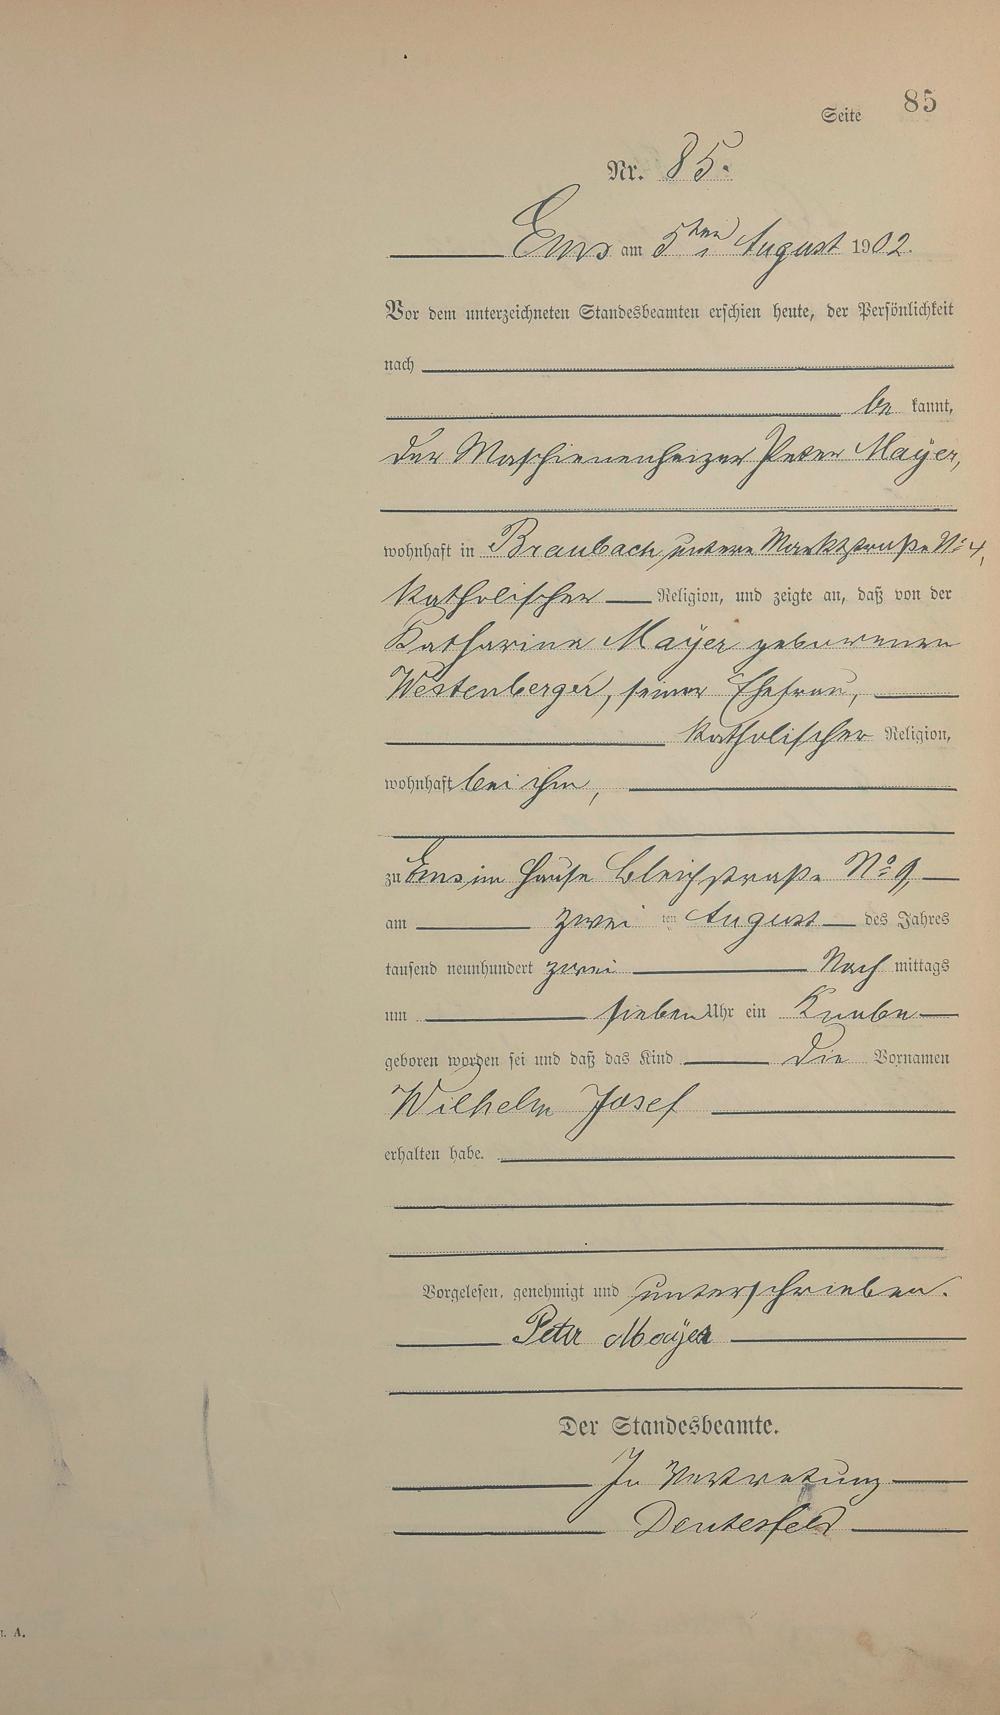 Seite 85
Nr. 85.
Ems am 5ten August 1902.
Vor dem unterzeichneten Standesbeamten erschien heute, der Persönlichkeit
nach
be kannt,
der Maschienenheizer Peter Mayer,
wohnhaft in Braubach, untere Marktstraße No 4,
katholischer Religion, und zeigte an, daß von der
Katharina Mayer geborenen
Westenberger, seiner Ehefrau,
katholischer Religion,
wohnhaft bei ihm,
zu Ems im Hause Bleichstraße No 9,
am zwei ten August des Jahres
tausend neunhundert zwei Nach mittags
um sieben Uhr ein Knabe
geboren worden sei und daß das Kind die Vornamen
Wilhelm Josef
erhalten habe.
Vorgelesen, genehmigt und unterschrieben.
Peter Mayer
Der Standesbeamte.
In Vertretung
Deutesfeld
A.